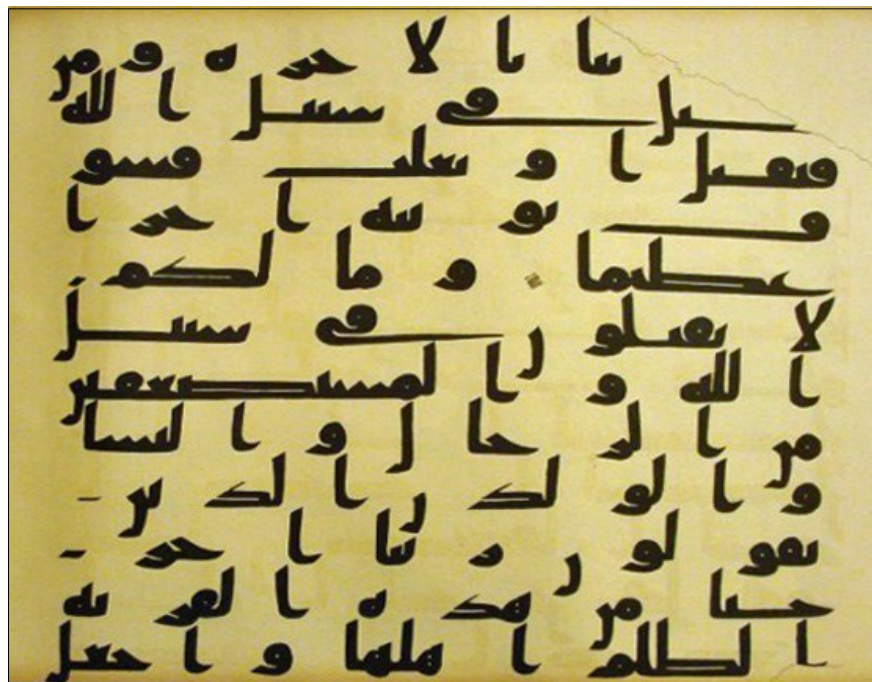 نيا بالاخرة ومن
يقتل في سبيل الله
فيقتل او يغلب فسو
ف نؤتيه اجرا
عظيما وما لكم
لا تقتلون في سبيل
الله والمستضعفين
من الرجال والنسا
والولدن الذين
يقولون ربنا اخر
جنا من هذه القرية
الظلم اهلها واجعل